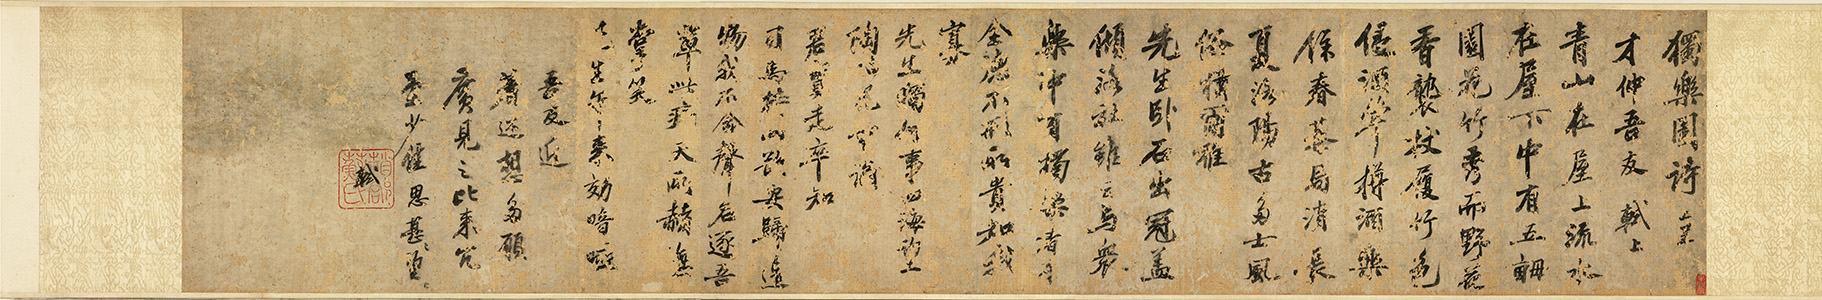 獨樂園詩 上呈
才仲吾友 軾上
青山在屋上流水
在屋下中有五畝
園花竹秀而野花
香襲杖屨竹色
侵酒斝樽酒樂
餘春棊局消長
夏洛陽古多士風
俗猶爾雅
先生臥不出冠蓋
傾洛社雖云與衆
樂中有獨樂者才
全德不形所貴知我
寡
先生獨何事四海望
陶冶兒童誦
君實走卒知
司馬持此欲安歸造
物我不舍聲名逐吾
輩此病天所赭撫
掌笑
先生年來效喑啞
吾友近
著述想多願
廣見之比來
少健思甚望
軾
趙郡蘇氏